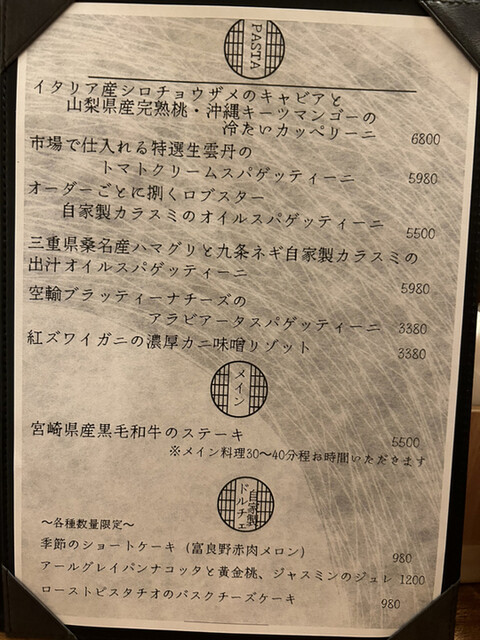 PASTA
イタリア産シロチョウザメのキャビアと
山梨県産完熟桃・沖縄キーツマンゴーの
冷たいカッペリーニ 6800
市場で仕入れる特選生雲丹の
トマトクリームスパゲッティーニ 5980
オーダーごとに捌くロブスター
自家製カラスミのオイルスパゲッティーニ 5500
三重県桑名産ハマグリと九条ネギ自家製カラスミの
出汁オイルスパゲッティーニ 5980
空輸ブラッティーナチーズの
アラビアータスパゲッティーニ 3380
紅ズワイガニの濃厚カニ味噌リゾット 3380
メイン
宮崎県産黒毛和牛のステーキ 5500
※メイン料理30〜40分程お時間いただきます
自家製
ドルチェ
〜各種数量限定〜
季節のショートケーキ（富良野赤肉メロン） 980
アールグレイパンナコッタと黄金桃、ジャスミンのジュレ 1200
ローストピスタチオのバスクチーズケーキ 980